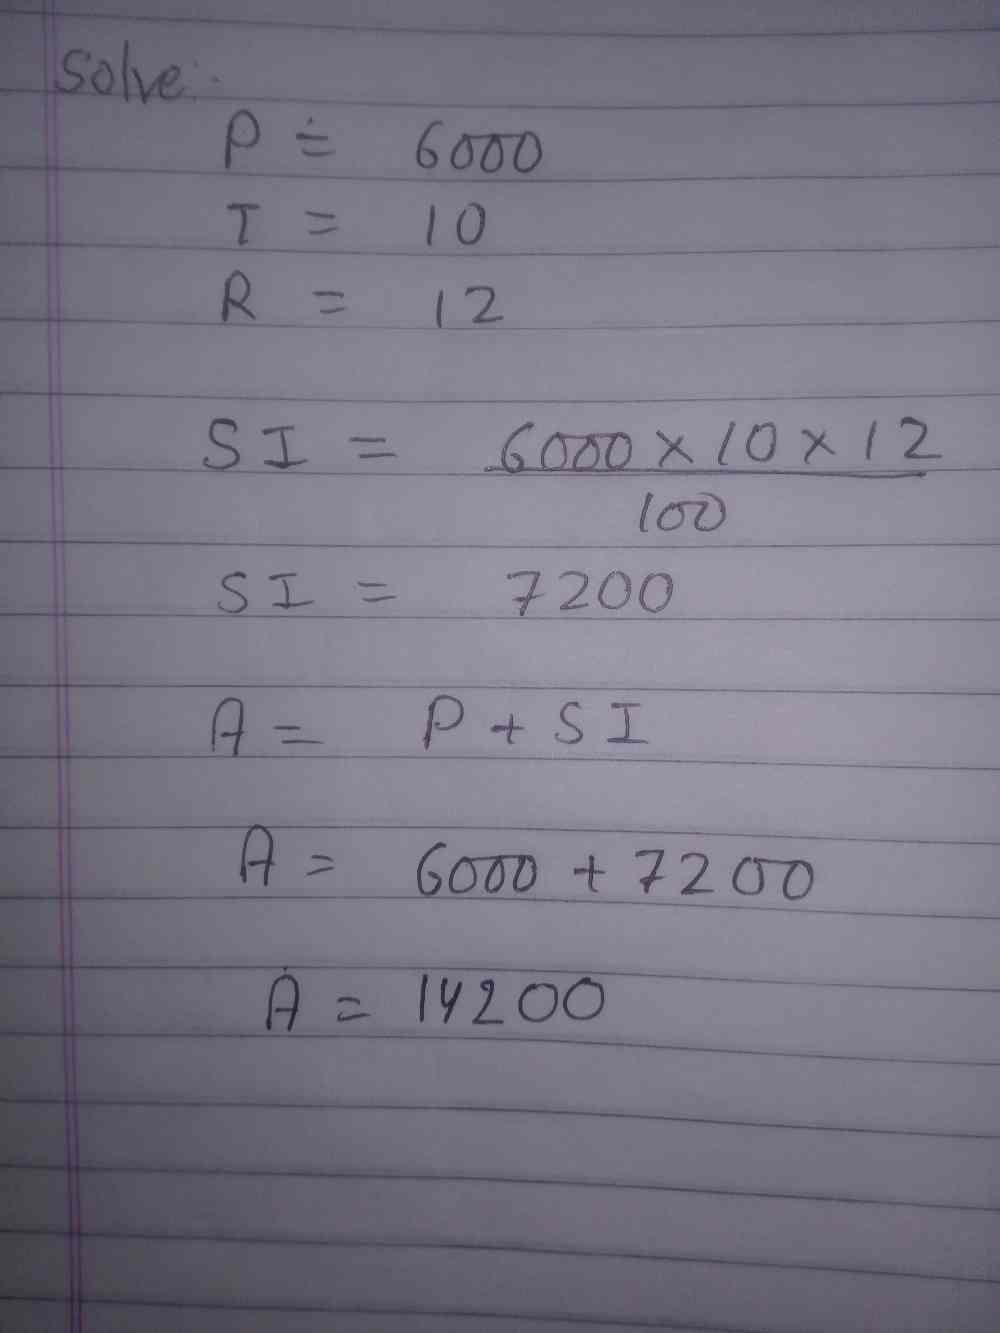 Solve:-
P = 6000
T = 10
R = 12
SI = 6000 × 10 × 12
100
SI = 7200
A = P + SI
A = 6000 + 7200
A = 14200